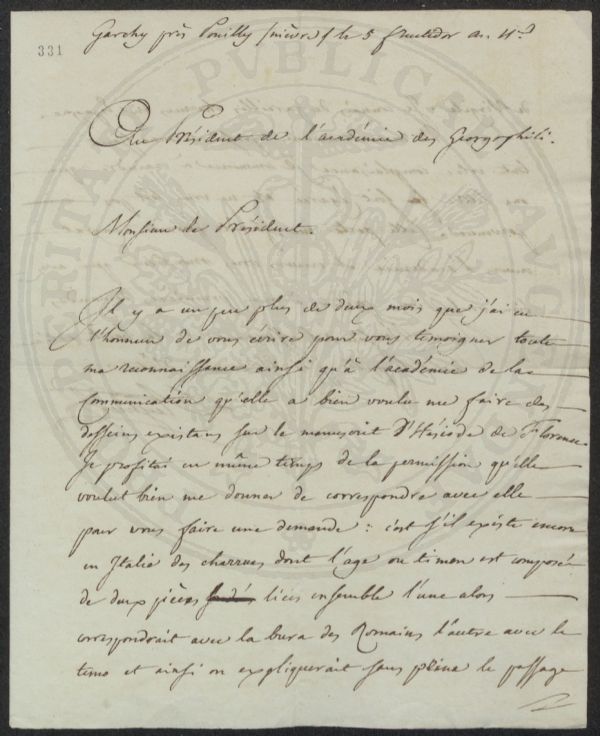 331
Garchy près Pouilly (nièvre) le 5 fructidor an 11.
Au Président de l'académie des Georgophili.
Monsieur le Président.
Il y a un peu plus de deux mois que j'ai eu
l'honneur de vous écrire pour vous temoigner toute
ma reconnaissance ainsi qu'à l'académie de la
Communication qu'elle a bien voulu me faire des
desseins existans sur le manuscrit d'Hésiode de Florence.
Je profitai en même temps de la permission qu'elle
voulut bien me donner de correspondre avec elle
pour vous faire une demande : c'est s'il existe encore
en Italie des charrues dont l'age ou timon est composé
de deux pièces liées ensemble l'une alors
correspondrait avec la bura des Romains l'autre avec le
temo et ainsi on expliquerait sans peine le passage